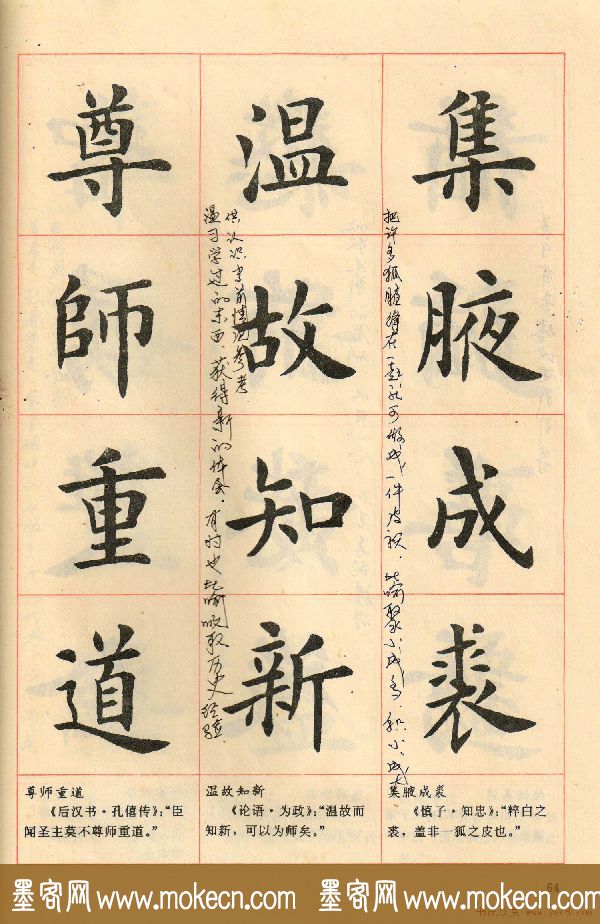 集腋成裘
把许多狐腋缝在一起就可做成一件皮袄，比喻聚小成多，积小成
温故知新
温习学过的东西，获得新的体会，有时也比喻吸取历史经验，
供认识当前情况参考
尊師重道
集腋成裘
《慎子·知忠》：“粹白之
裘，盖非一狐之皮也。”
温故知新
《论语·为政》：“温故而
知新，可以为师矣。”
尊师重道
《后汉书·孔僖传》：“臣
闻圣主莫不尊师重道。”
64
墨客网 www.mokecn.com 墨客网 www.mokecn.com